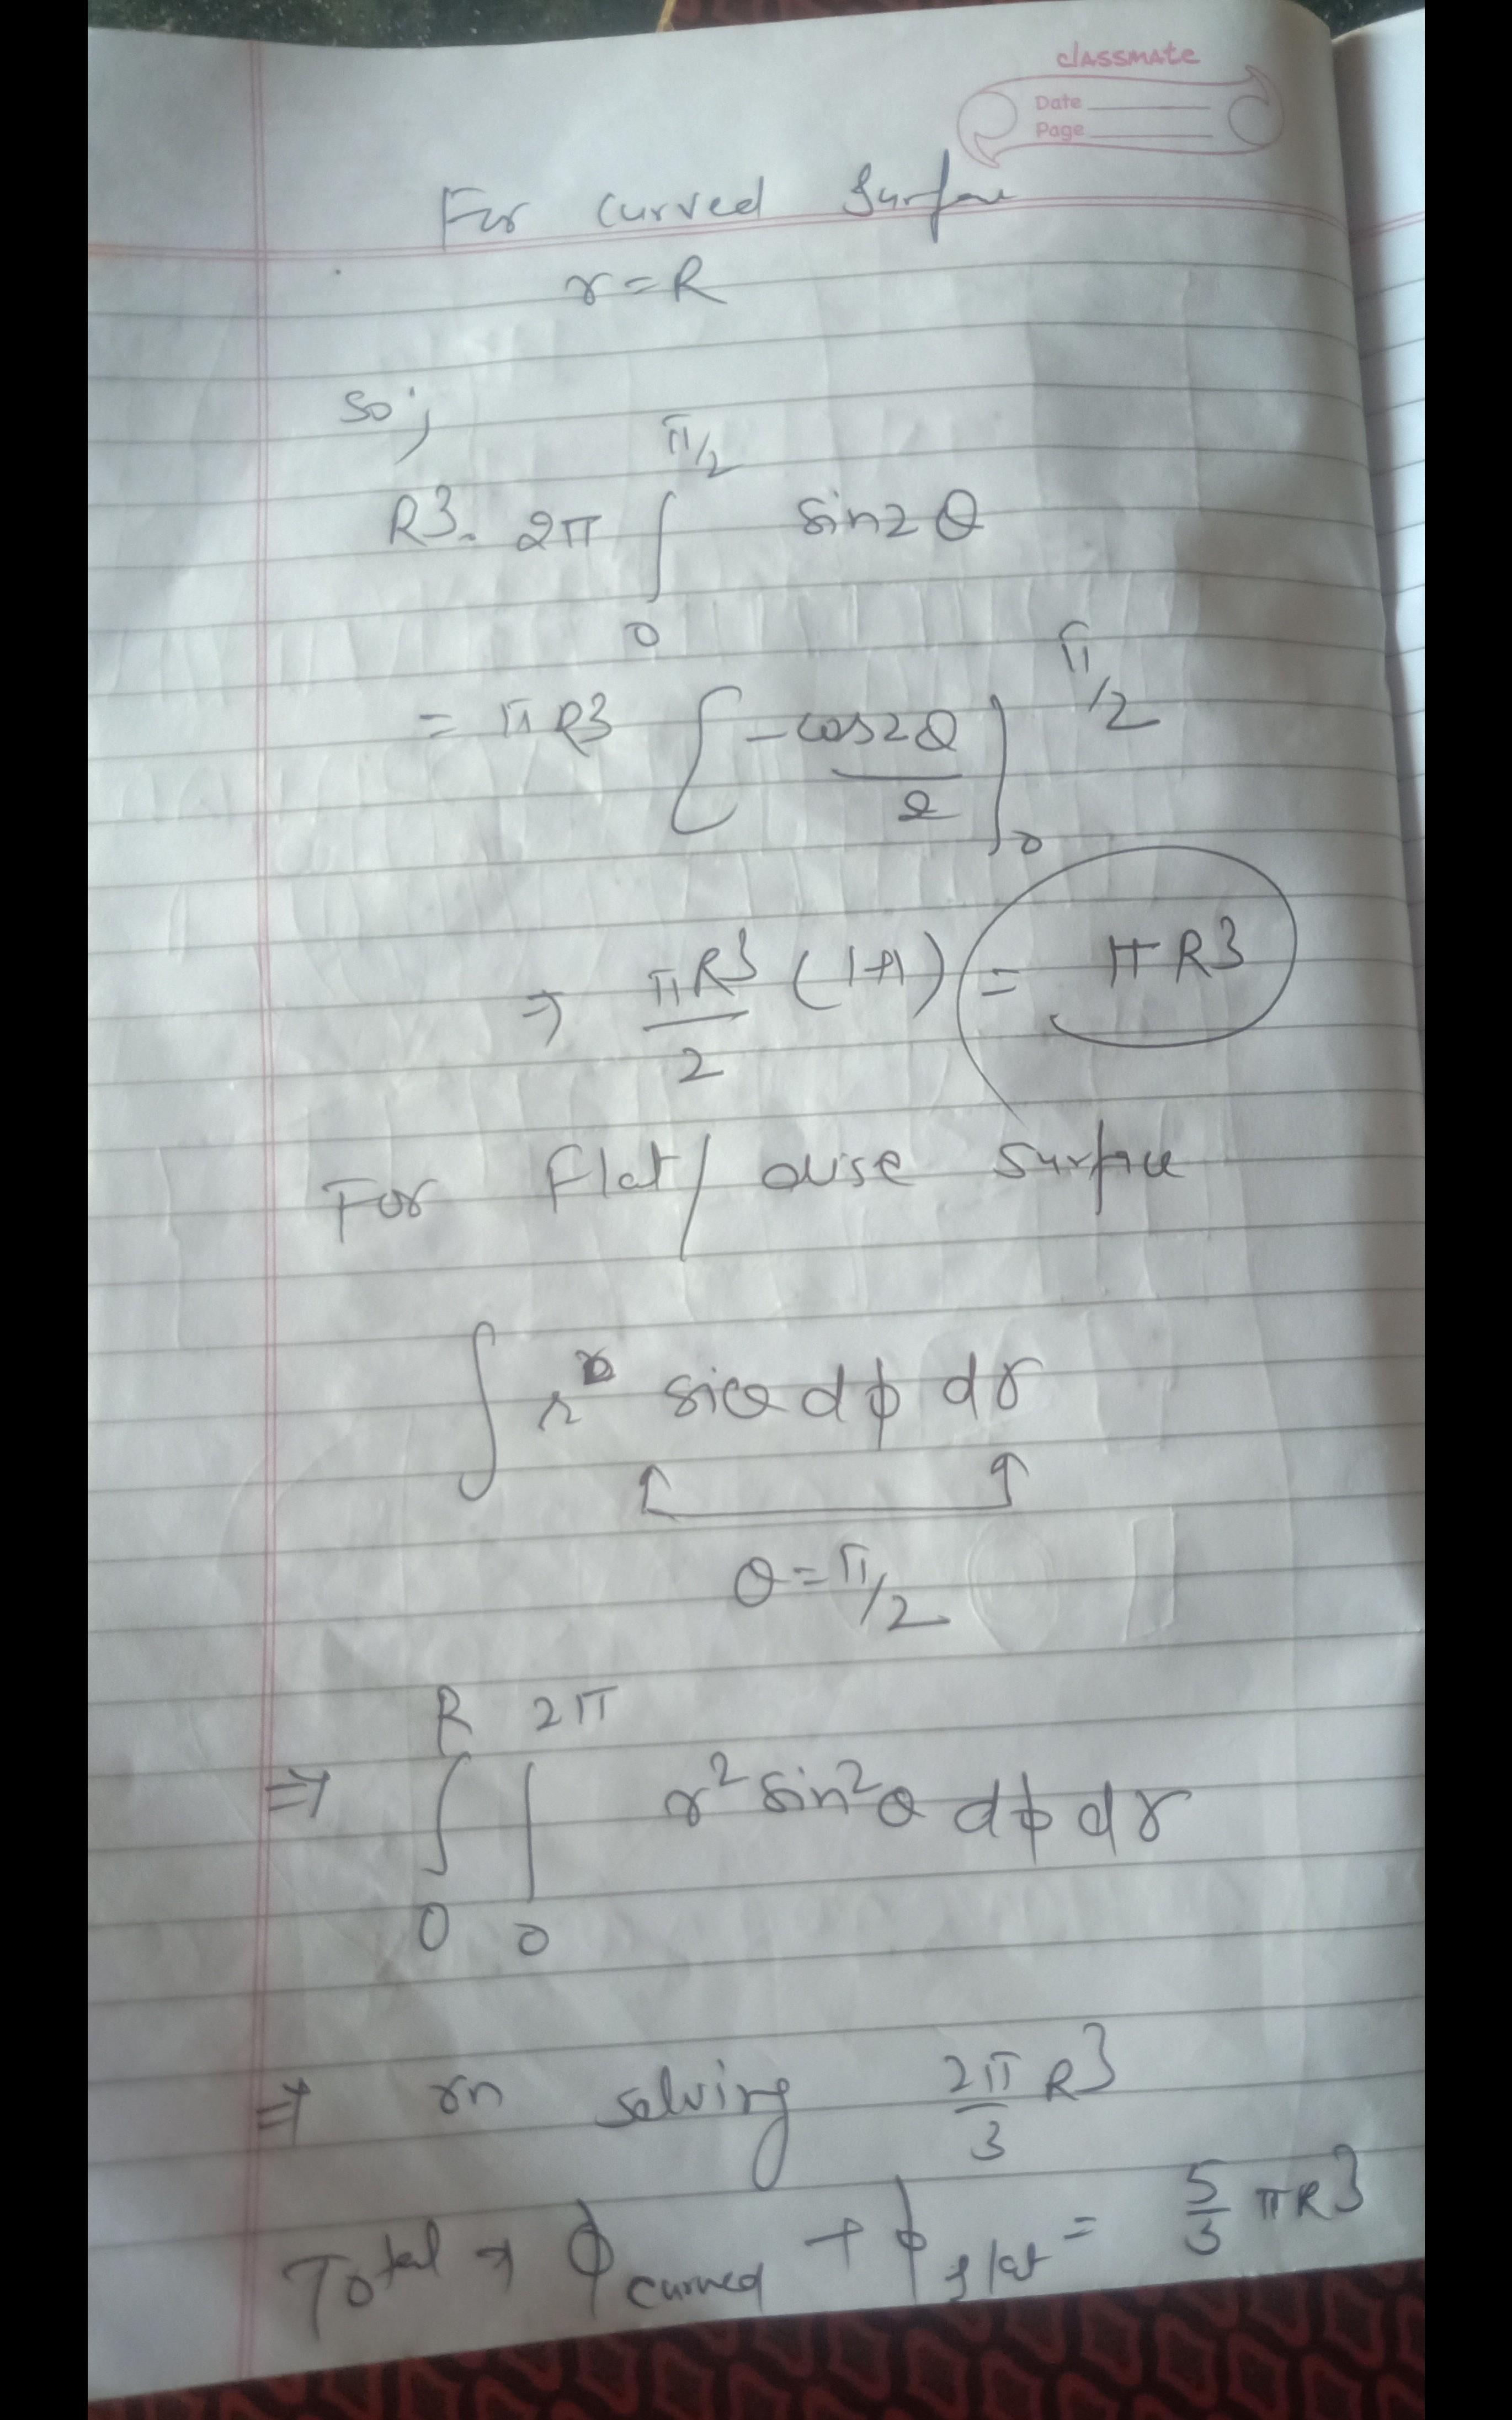 classmate
Date
Page
For curved Surface
r = R
so;
R3. 2π ∫ sin2θ
π/2
0
= πR3 [-cos2θ/2]
π/2
0
⇒ πR3/2 (1+1) = πR3
For Flat/ disc surface
∫ r sinθ dϕ dr
θ = π/2
R 2π
⇒ ∫ ∫ r² sin²θ dϕ dr
0 0
⇒ on solving 2π/3 R3
Total → ϕcurved + ϕflat = 5/3 πR3